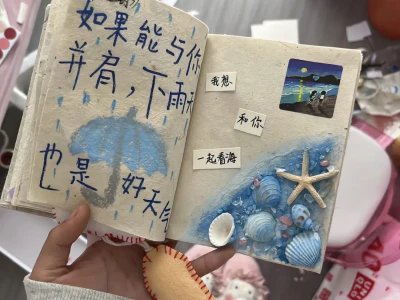 如果能与你
并肩，下雨天
也是好天气
我想
和你
一起看海